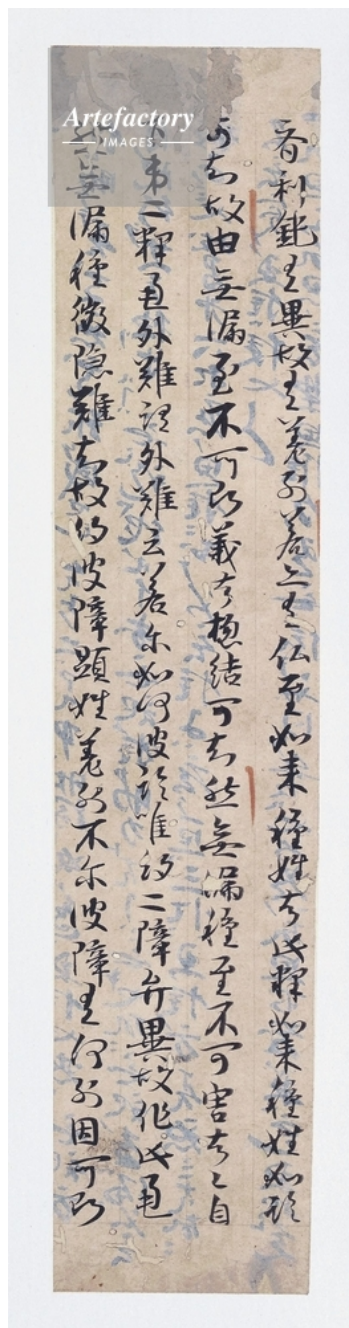 Artefactory
IMAGES
利鈍有異故有差別若亦有仏至如来種姓者此釋如来種姓如
可知故由無漏至不可断義者惣結可知然無漏種至不可害者〻自
下第二釋通外難謂外難云若尓如何彼論唯約二障弁異故作此通
然無漏種微隐難知故約彼障顯姓差別不尓彼障有何別因可断